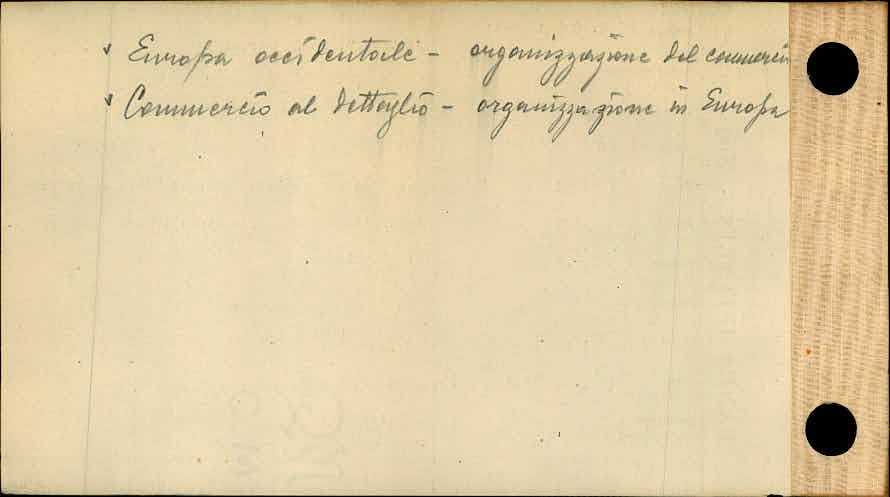 ✓ Europa occidentale - organizzazione del commercio
✓ Commercio al dettaglio - organizzazione in Europa